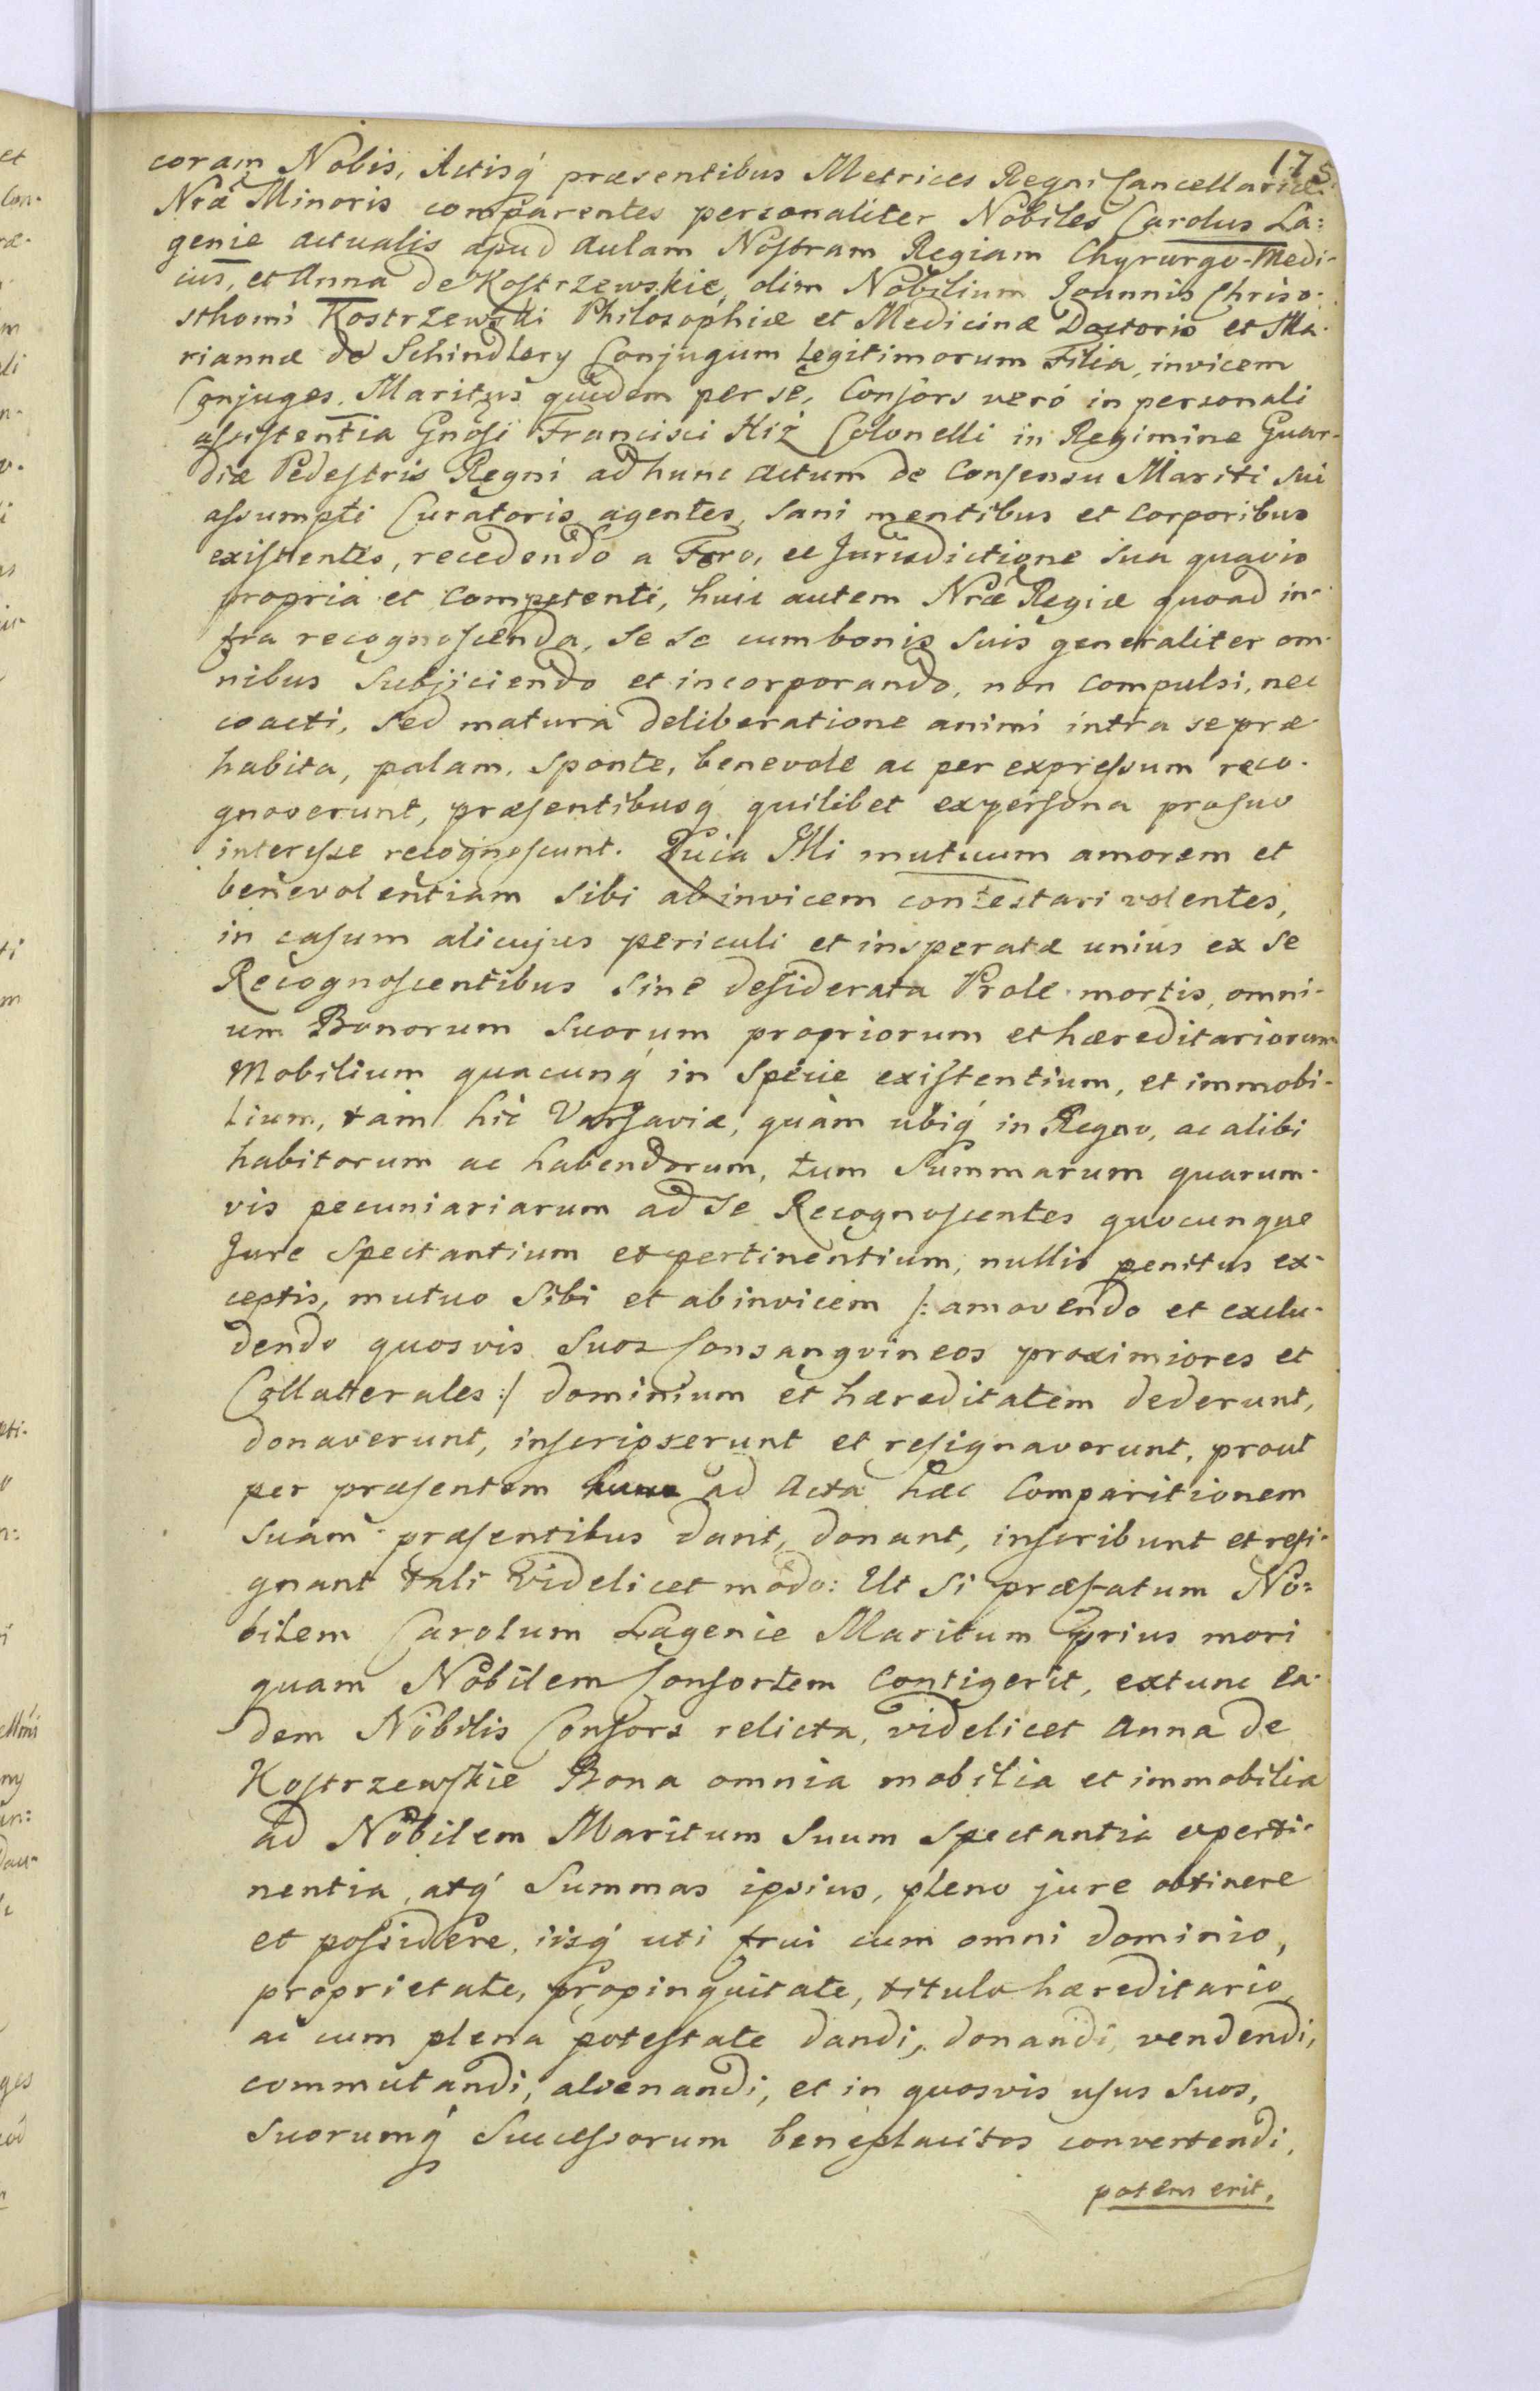 175.
coram Nobis, Actisq́ præsentibus Metrices Regni Cancellariæ
Nræ Minoris comparentes personaliter Nobiles Carolus La:
genie actualis apud Aulam Nostram Regiam Chyrurgo-Medi-
cus, et Anna de Kostrzewskie, olim Nobilium Joannis Chriso-
sthomi Kostrzewski Philosophiæ et Medicinæ Doctoris et Ma-
riannæ de Schindlery Conjugum legitimorum Filia, invicem
Conjuges, Maritus quidem per se, Consors veró in personali
assistentia Gnosi Francisci Kiż Colonelli in Regimine Guar-
diæ Pedestris Regni ad hunc actum de Consensu Mariti sui
assumpti Curatoris agentes, sani mentibus et corporibus
existentes, recedendo a Foro, et Jurisdictione sua quavis
propria et competenti, huic autem Nræ Regiæ quoad in-
fra recognoscenda, se se cum bonis suis generaliter om-
nibus subjiciendo et incorporando, non compulsi, nec
coacti, sed matura deliberatione animi intra se præ-
habita, palam, sponte, benevole ac per expressum reco-
gnoverunt, præsentibusq́ quilibet ex persona pro suo
interesse recognoscunt. Quia Illi mutuum amorem et
benevolentiam sibi ab invicem contestari volentes,
in casum alicujus periculi et insperatæ unius ex se
Recognoscentibus sine desiderata Prole mortis, omni-
um Bonorum suorum propriorum et hæreditariorum
Mobilium quacunq́ in specie existentium, et immobi-
lium, tam hic Varsaviæ, quàm ubiq́ in Regno, ac alibi
habitorum ac habendorum, tum Summarum quarum-
vis pecuniariarum ad se Recognoscentes quocunque
Jure spectantium et pertinentium, nullis penitus ex-
ceptis, mutuo sibi et ab invicem /: amovendo et exclu-
dendo quosvis suos Consangvineos proximiores et
Collatterales :/ dominium et hæreditatem dederunt,
donaverunt, inscripserunt et resignaverunt, prout
per præsentem ad Acta hæc Comparitionem
suam præsentibus dant, donant, inscribunt et resi-
gnant tali videlicet modo: Ut si præfatum No=
bilem Carolum Lagenie Maritum prius mori
quam Nobilem Consortem contigerit, extunc ea-
dem Nobilis Consors relicta, videlicet Anna de
Kostrzewskie Bona omnia mobilia et immobilia
ad Nobilem Maritum suum spectantia e perti-
nentia, atq́ Summas ipsius, pleno jure obtinere
et possidere, iisq́ uti frui cum omni dominio,
proprietate, propinquitate, titulo hæreditario,
ac cum plena potestate dandi, donandi, vendendi,
commutandi, alienandi, et in quosvis usus suos,
suorumq́ Successorum beneplacitos convertendi,
potens erit,